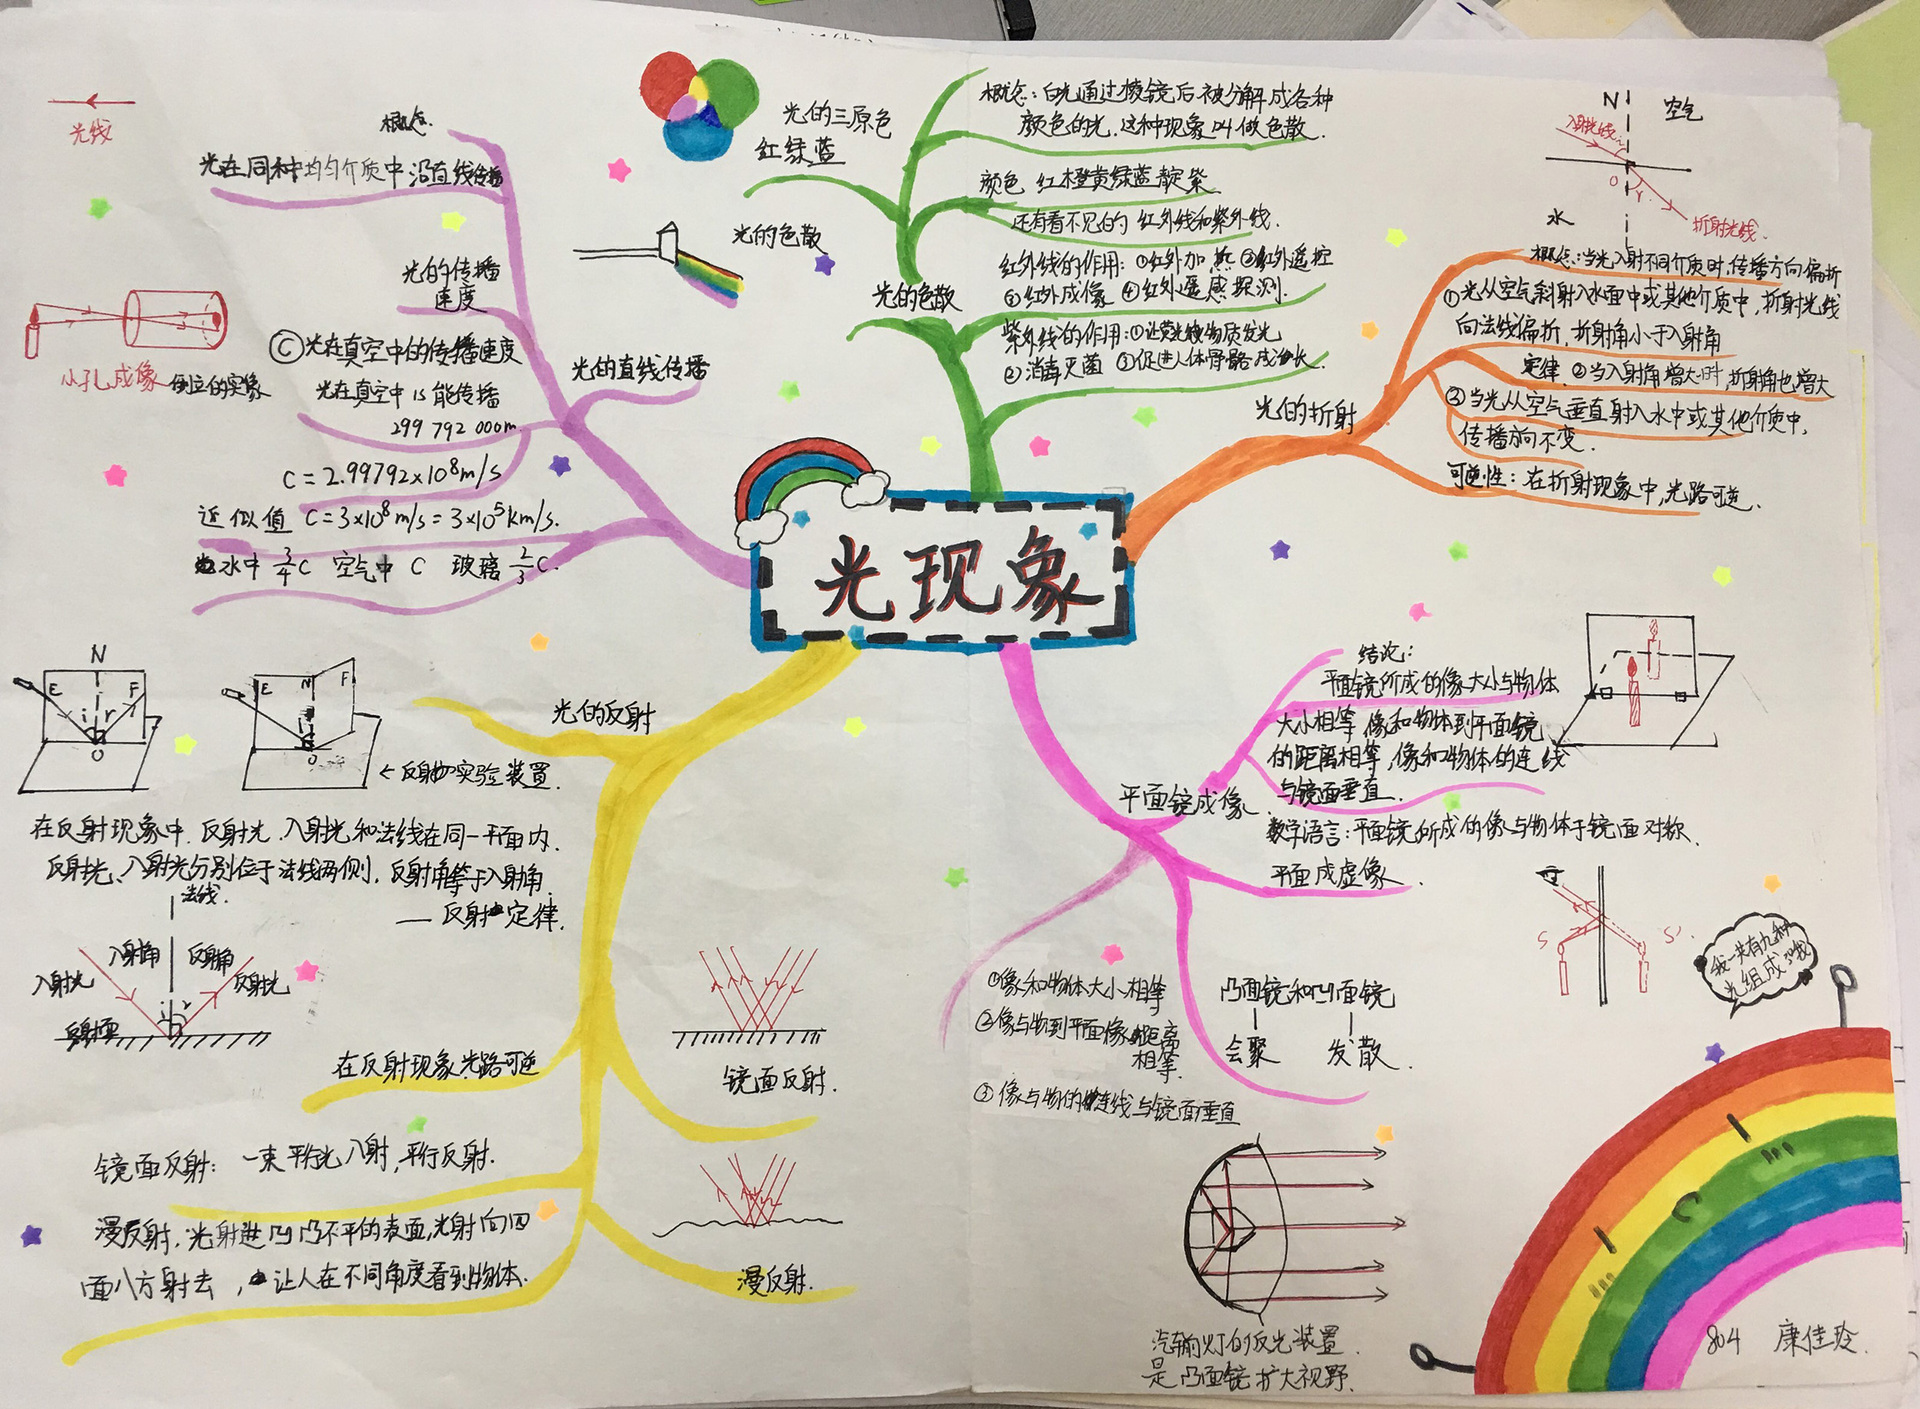 光现象
光线
概念
光在同种均匀介质中沿直线传播
光的传播
速度
Ⓒ光在真空中的传播速度
光在真空中 能传播
299 792 000m
C=2.99792×10⁸m/s
近似值 C=3×10⁸m/s=3×10⁵km/s.
水中 3/4 C 空气中 C 玻璃 2/3 C.
光的直线传播
小孔成像 倒立的实像
光的三原色
红绿蓝
光的色散
光的色散
概念:白光通过棱镜后被分解成各种
颜色的光,这种现象叫做色散.
颜色 红橙黄绿蓝靛紫
还有看不见的 红外线和紫外线.
红外线的作用:①红外加热②红外遥控
③红外成像 ④红外遥感探测.
紫外线的作用:①让荧光物质发光
②消毒灭菌 ③促进人体骨骼成长
N
空气
入射光线
O
r
水
折射光线.
光的折射
概念:当光入射不同介质时,传播方向偏折
①光从空气斜射入水面中或其他介质中,折射光线
向法线偏折,折射角小于入射角
定律 ②当入射角增大时,折射角也增大
③当光从空气垂直射入水中或其他介质中,
传播方向不变.
可逆性:在折射现象中,光路可逆.
N
E
F
i
r
O
E
N
F
O
←反射的实验装置.
光的反射
在反射现象中.反射光.入射光和法线在同一平面内.
反射光、入射光分别位于法线两侧.反射角等于入射角.
——反射定律.
法线.
入射角
反射角
入射光
反射光
反射面
i
r
在反射现象光路可逆
镜面反射.
镜面反射:一束平行光入射,平行反射.
漫反射.光射进凹凸不平的表面,光射向四
面八方射去,让人在不同角度看到物体.
漫反射.
平面镜成像
结论:
平面镜所成的像大小与物体
大小相等 像和物体到平面镜
的距离相等,像和物体的连线
与镜面垂直.
数学语言:平面镜所成的像与物体于镜面对称.
平面成虚像
S
S'
①像和物体大小相等
②像与物到平面像距离
相等.
③像与物的连线与镜面垂直
凸面镜和凹面镜
会聚 发散.
我一共有九种
光组成
汽车前灯的反光装置
是凹面镜扩大视野.
804 康佳玲.